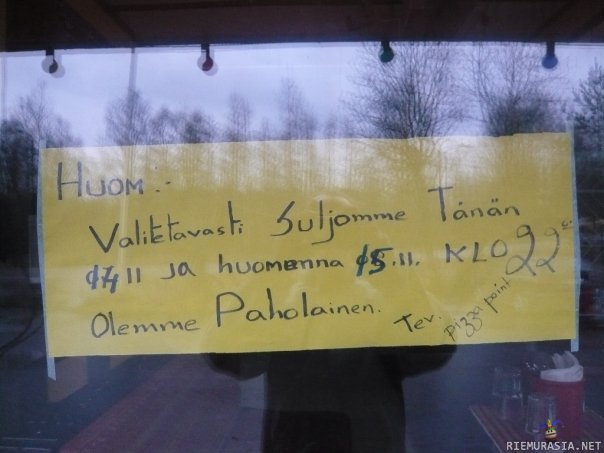 HUOM:-
Valitetavasti Suljomme Tänän
14.11 JA huomenna 15.11. KLO 22
Olemme Paholainen.
Tev. pizza point
RIEMURASIA.NET